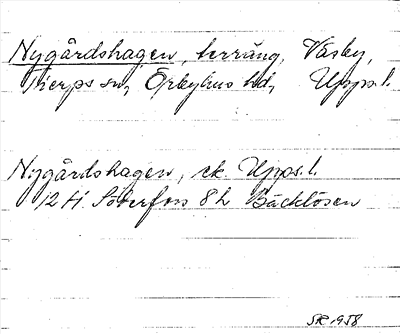 Nygårdshagen, terräng, Väsby,
Tierps sn, Örbyhus hd, Upps.l.
Nygårdshagen, ek. Upps.l.
12 H Söderfors 8 h Bäcklösen
SR 1958